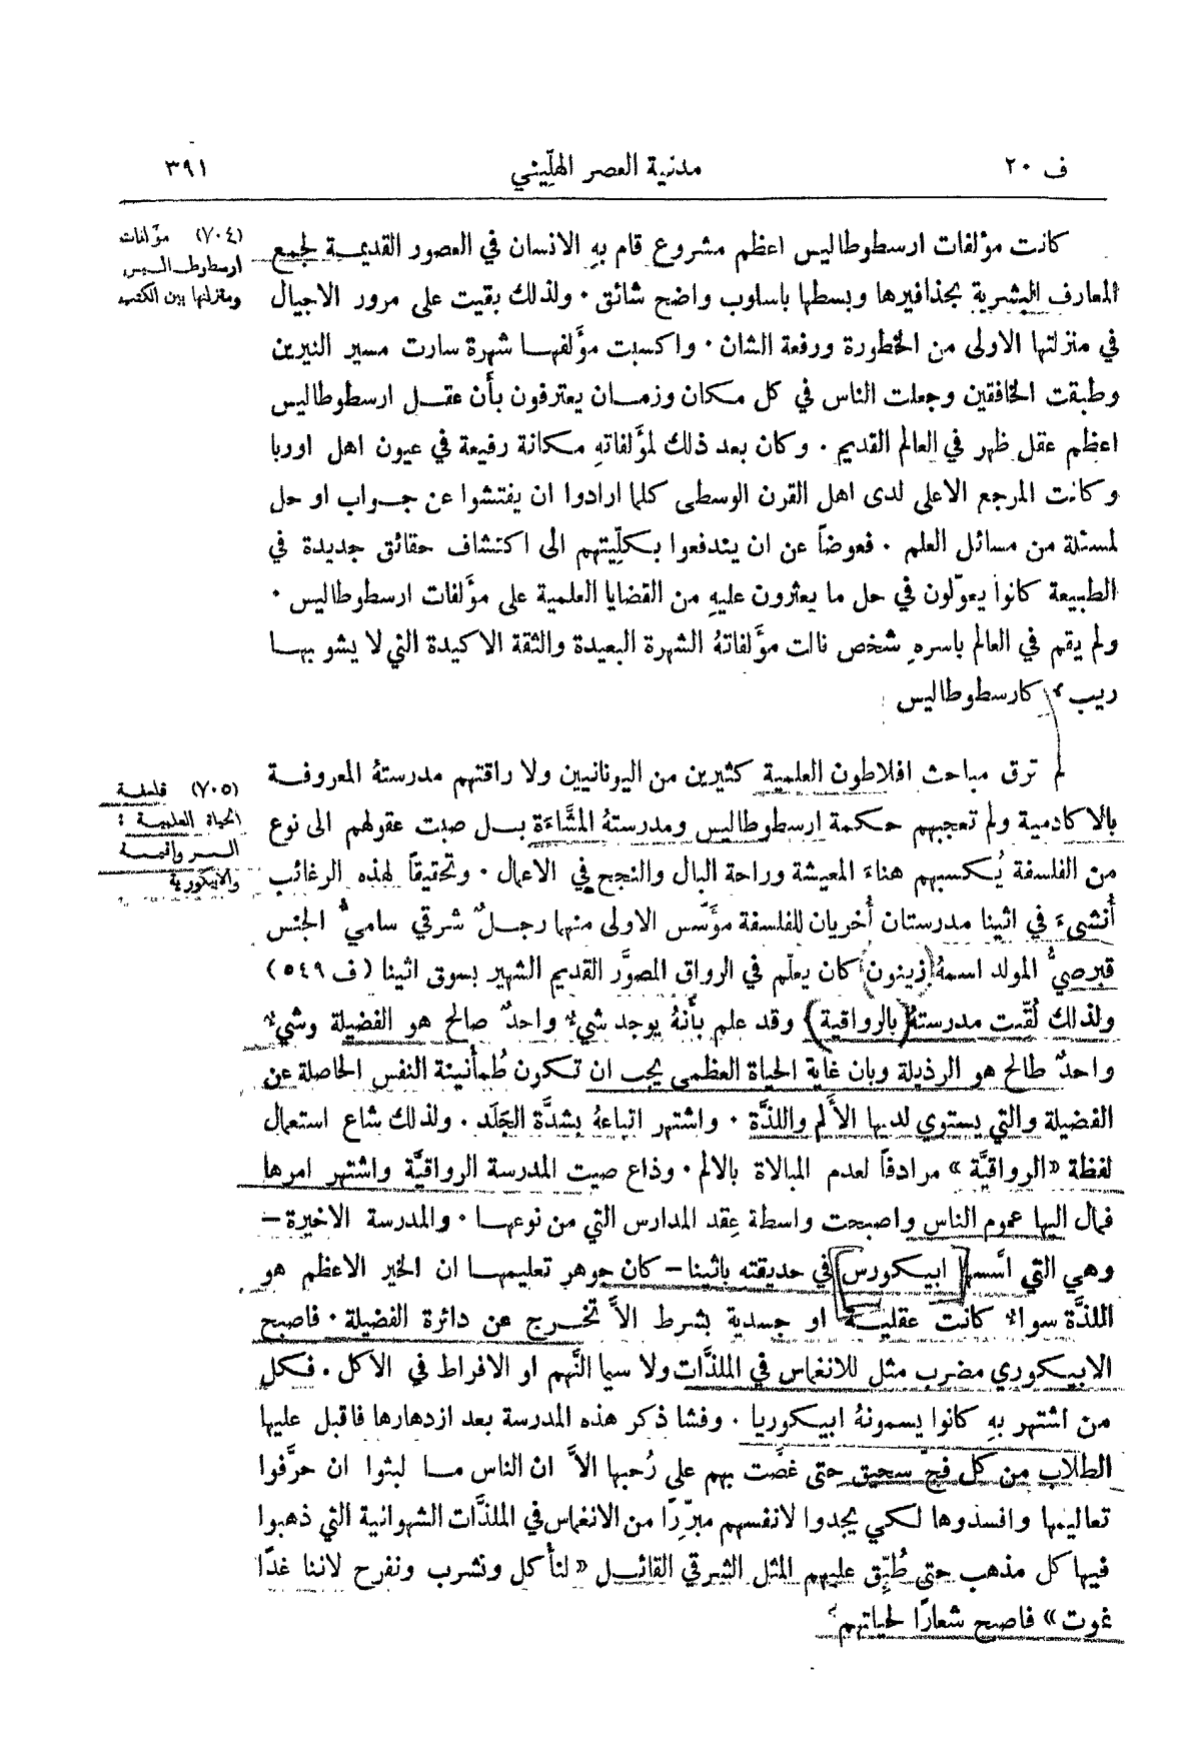 ف ٢٠ مدنية العصر الهلّيني ٣٩١
(٧٠٤) مؤلفات
ارسطوطاليس
ومنزلتها بين الكتب
كانت مؤلفات ارسطوطاليس اعظم مشروع قام بهِ الانسان في العصور القديمة لجمع
المعارف البشرية بحذافيرها وبسطها باسلوب واضح شائق · ولذلك بقيت على مرور الاجيال
في منزلتها الاولى من الخطورة ورفعة الشان · واكسبت مؤَلفها شهرة سارت مسير النيرين
وطبقت الخافقين وجعلت الناس في كل مكان وزمان يعترفون بأَن عقل ارسطوطاليس
اعظم عقل ظهر في العالم القديم · وكان بعد ذلك لمؤَلفاتهِ مكانة رفيعة في عيون اهل اوربا
وكانت المرجع الاعلى لدى اهل القرن الوسطى كلما ارادوا ان يفتشوا عن جواب او حل
لمسئلة من مسائل العلم · فعوضاً عن ان يندفعوا بكلّيتهم الى اكتشاف حقائق جديدة في
الطبيعة كانوا يعوّلون في حل ما يعثرون عليهِ من القضايا العلمية على مؤَلفات ارسطوطاليس ·
ولم يقم في العالم باسرهِ شخص نالت مؤَلفاتهُ الشهرة البعيدة والثقة الاكيدة التي لا يشو بها
ريب كارسطوطاليس
(٧٠٥) فلسفة
الحياة العلمية :
الرواقية
والابيكورية
لم ترق مباحث افلاطون العلمية كثيرين من اليونانيين ولا راقتهم مدرستهُ المعروفة
بالاكادمية ولم تعجبهم حكمة ارسطوطاليس ومدرستهُ المشَّاءَة بل صبت عقولهم الى نوع
من الفلسفة يُكسبهم هناءَ المعيشة وراحة البال والنجح في الاعمال · وتحقيقاً لهذه الرغائب
أُنشىءَ في اثينا مدرستان أُخريان للفلسفة مؤَسّس الاولى منها رجلٌ شرقي ساميُّ الجنس
قبرصيُّ المولد اسمهُ (زينون) كان يعلّم في الرواق المصوَّر القديم الشهير بسوق اثينا (ف ٥٤٩)
ولذلك لُقّبت مدرستهُ (بالرواقية) وقد علم بأَنهُ يوجد شيءٌ واحدٌ صالح هو الفضيلة وشيءٌ
واحدٌ طالح هو الرذيلة وبان غاية الحياة العظمى يجب ان تكون طُمأنينة النفس الحاصلة عن
الفضيلة والتي يستوي لديها الأَلم واللذَّة · واشتهر اتباعهُ بشدَّة الجَلَد · ولذلك شاع استعمال
لفظة «الرواقيَّة» مرادفاً لعدم المبالاة بالالم · وذاع صيت المدرسة الرواقيَّة واشتهر امرها
فمال اليها عموم الناس واصبحت واسطة عِقد المدارس التي من نوعها · والمدرسة الاخيرة –
وهي التي اسَّسها [ابيكورس] في حديقته باثينا – كان جوهر تعليمها ان الخير الاعظم هو
اللذَّة سواءٌ كانت عقلية او جسدية بشرط الاَّ تخرج عن دائرة الفضيلة · فاصبح
الابيكوري مضرب مثل للانغماس في الملذَّات ولا سيما النَّهم او الافراط في الاكل · فكل
من اشتهر بهِ كانوا يسمونهُ ابيكوريا · وفشا ذكر هذه المدرسة بعد ازدهارها فاقبل عليها
الطلاب من كل فجّ سحيق حتى غصَّت بهم على رُحبها الاَّ ان الناس ما لبثوا ان حرَّفوا
تعاليمها وافسدوها لكي يجدوا لانفسهم مبرّرًا من الانغماس في الملذَّات الشهوانية التي ذهبوا
فيها كل مذهب حتى طُبّق عليهم المثل الشرقي القائل «لنأكل ونشرب ونفرح لاننا غدًا
نموت» فاصبح شعارًا لحياتهم